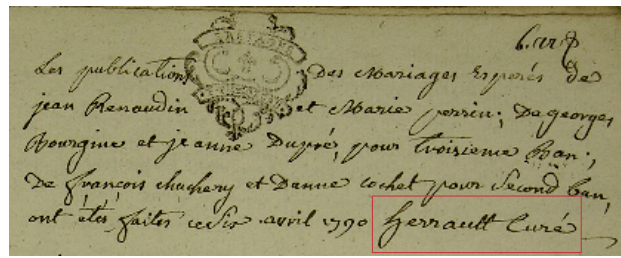 6. avr
Les publications des Mariages Esperés de
jean Renaudin et Marie perrin; De georges
Bourgine et jeanne Dupré, pour troisieme Ban;
De françois chachery et Danne cochet pour Second ban,
ont étés faites ce Six avril 1790 Herrault Curé